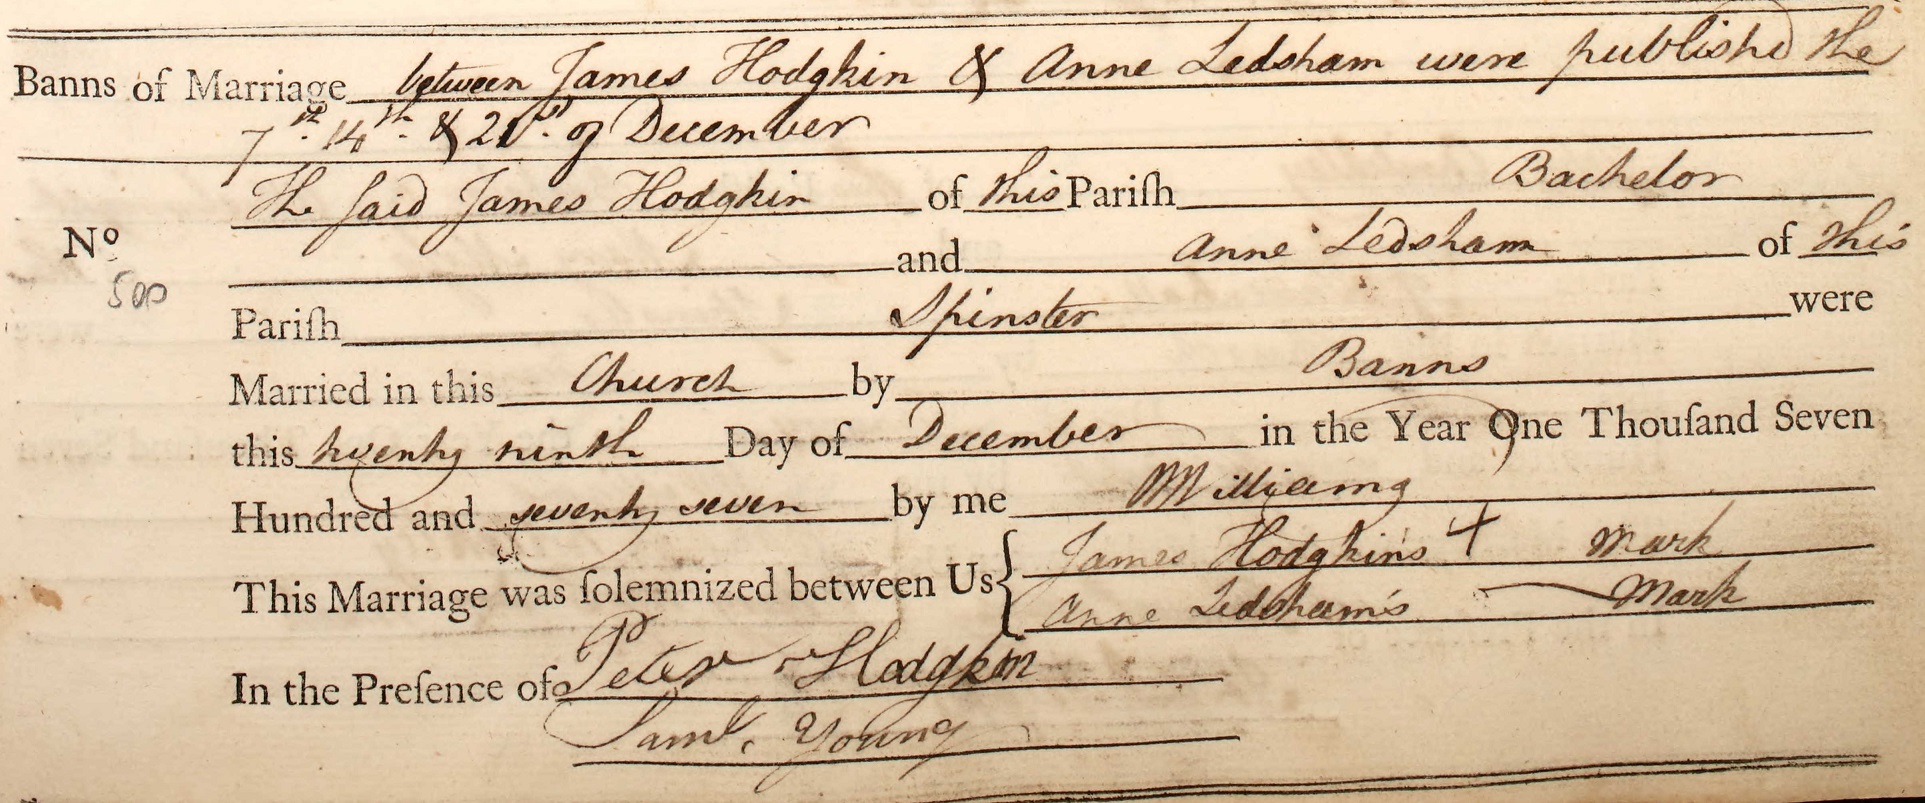 Banns of Marriage between James Hodgkin & Anne Ledsham were publishd the
7th. 14th. & 21st. of December
The said James Hodgkin of this Pariſh Bachelor
No and Anne Ledsham of this
500
Pariſh Spinster were
Married in this Church by Banns
this twenty ninth Day of December in the Year One Thouſand Seven
Hundred and seventy seven by me
This Marriage was ſolemnized between Us { James Hodgkin's + Mark
Anne Ledsham's Mark
In the Preſence of Peter Hodgkin
Saml. Young